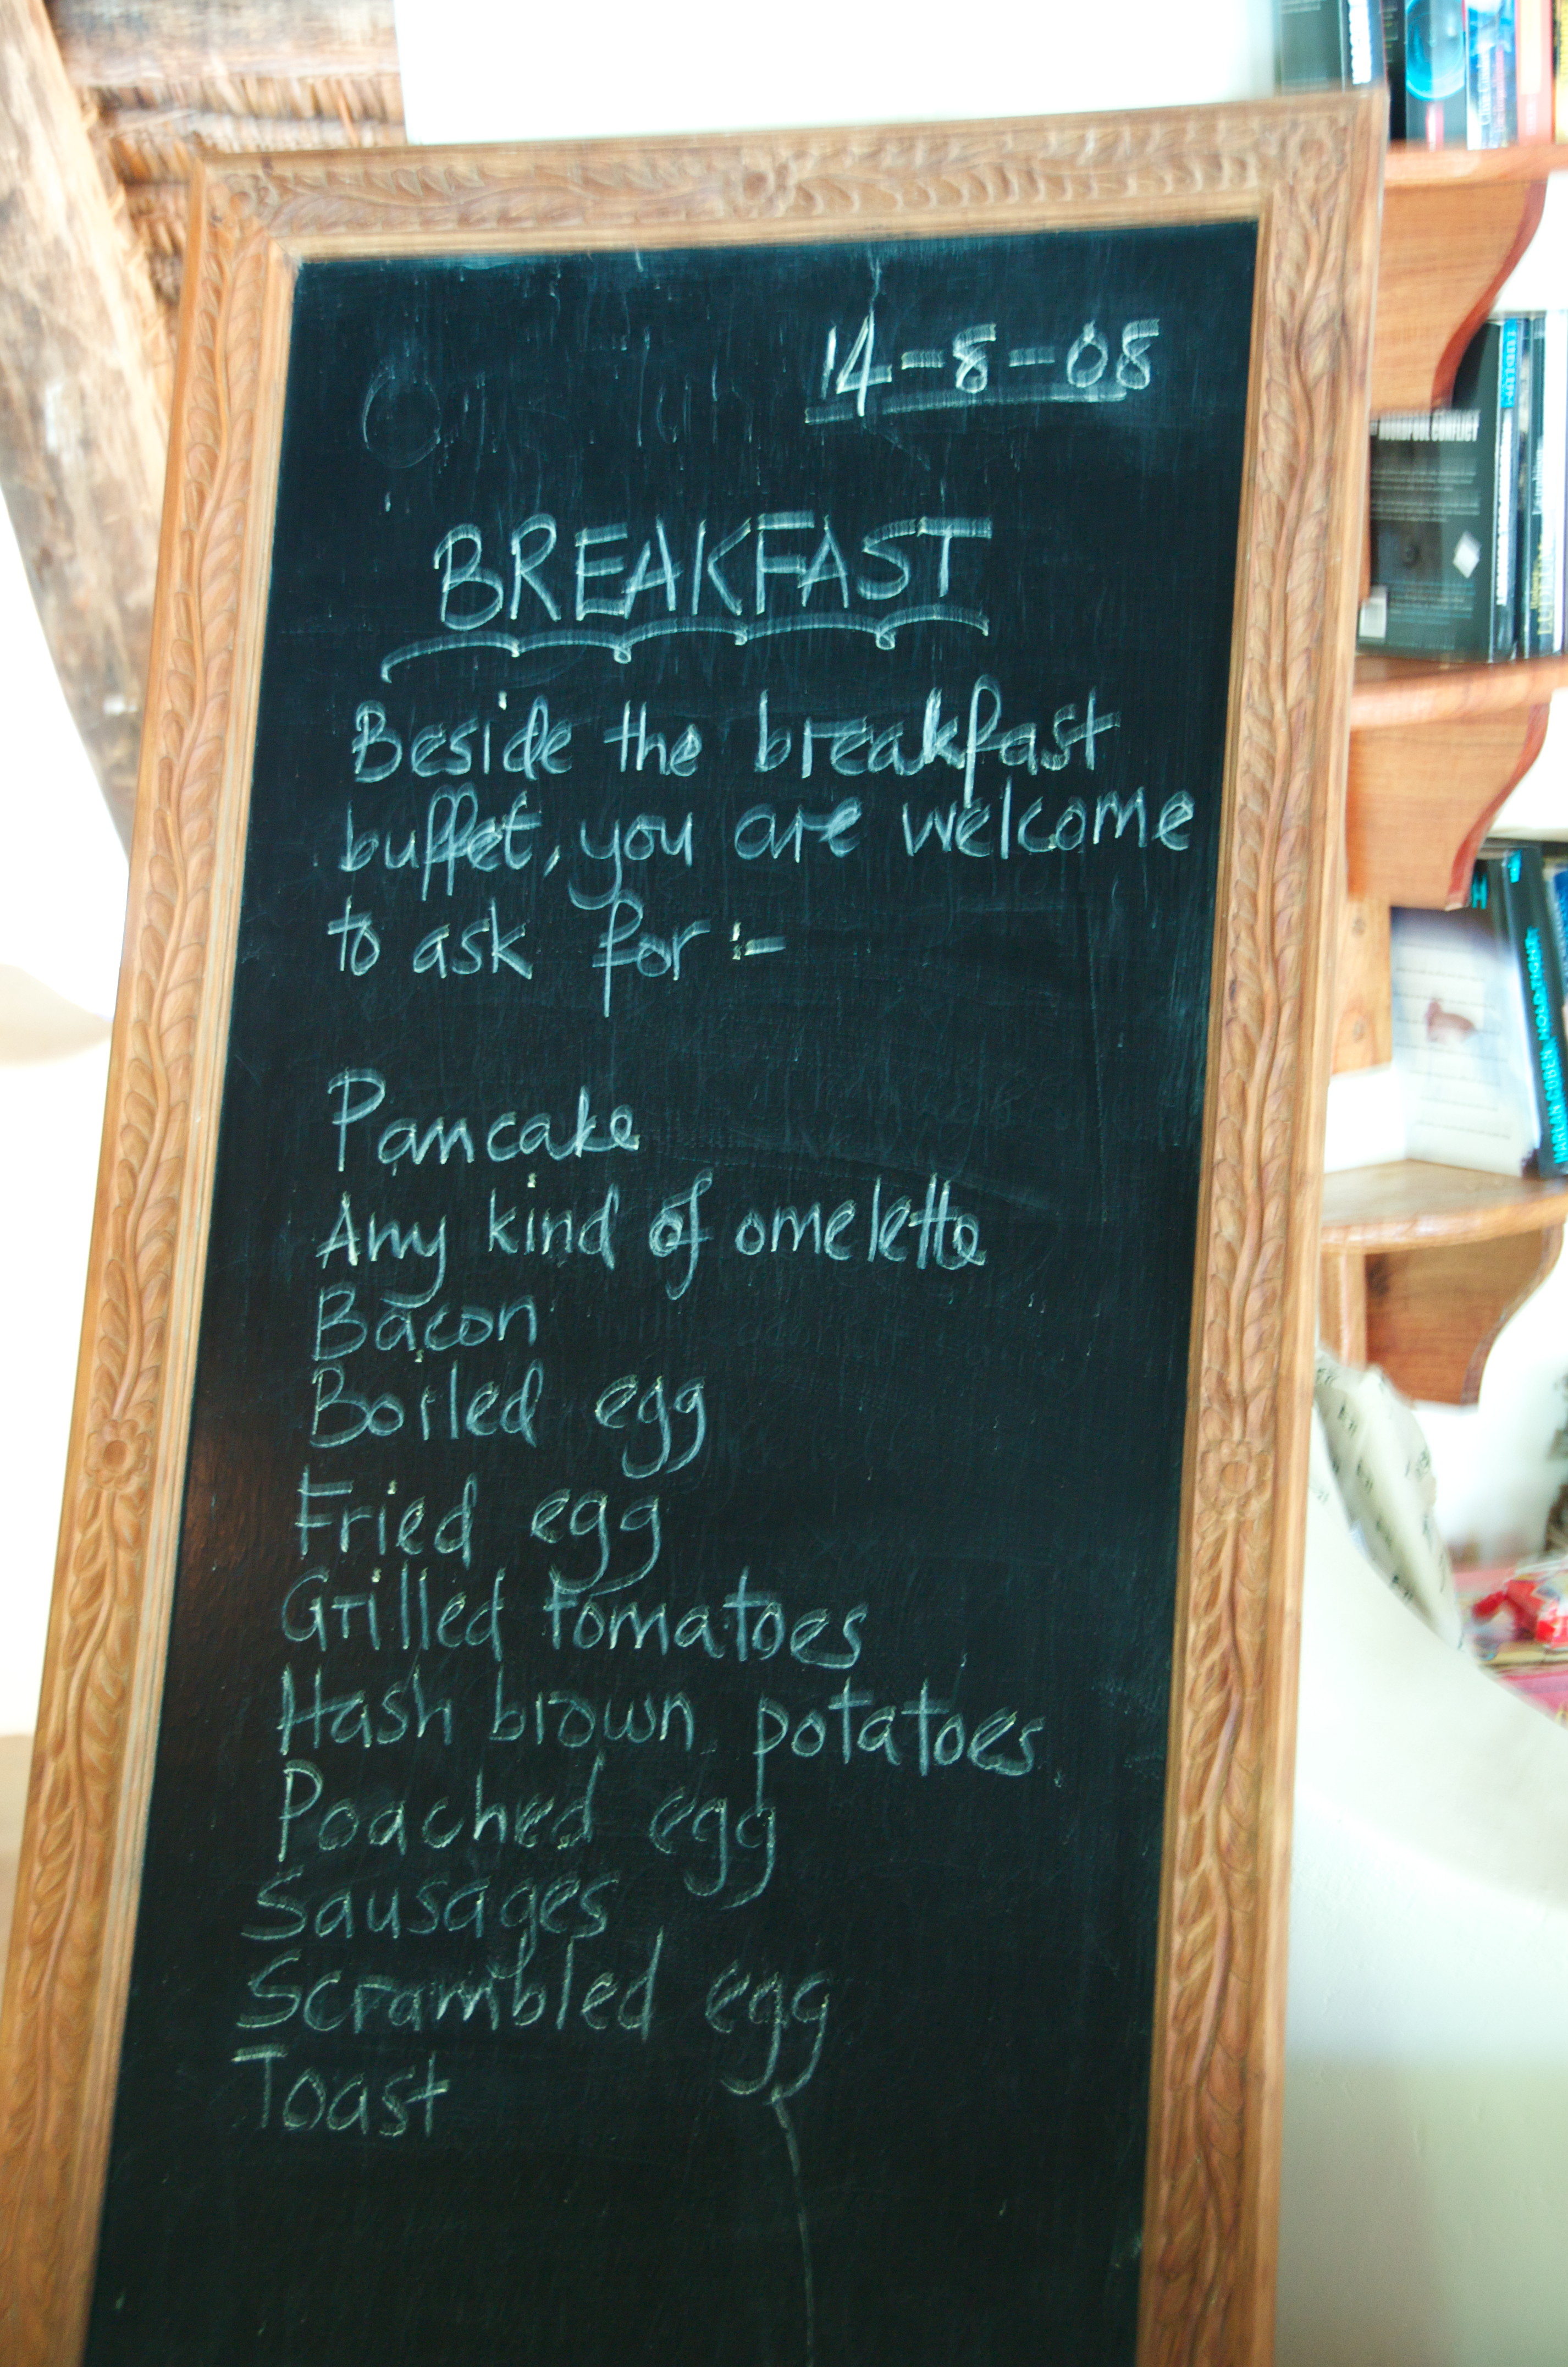 14-8-08
BREAKFAST
Beside the breakfast
buffet, you are welcome
to ask for :-
Pancake
Any kind of omelette
Bacon
Boiled egg
Fried egg
Grilled tomatoes
Hash brown potatoes
Poached egg
Sausages
Scrambled egg
Toast
HARLAN COBEN HOLD TIGHT